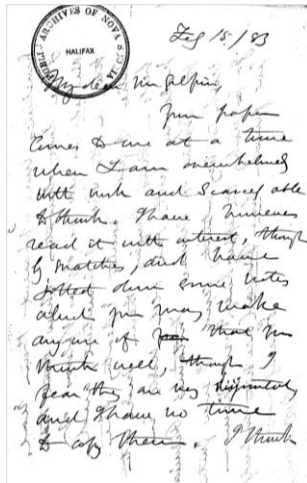 PUBLIC ARCHIVES OF NOVA SCOTIA
HALIFAX
Feby 15/83
My dear Mr Gilpin,
Your paper
comes to me at a time
when I am overwhelmed
with work and scarcely able
to think. I have however
read it with interest, though
by snatches, and have
jotted down some notes
which you may make
any use of that you
think well, though I
fear they are very disjointed
and I have no time
to copy them. I think